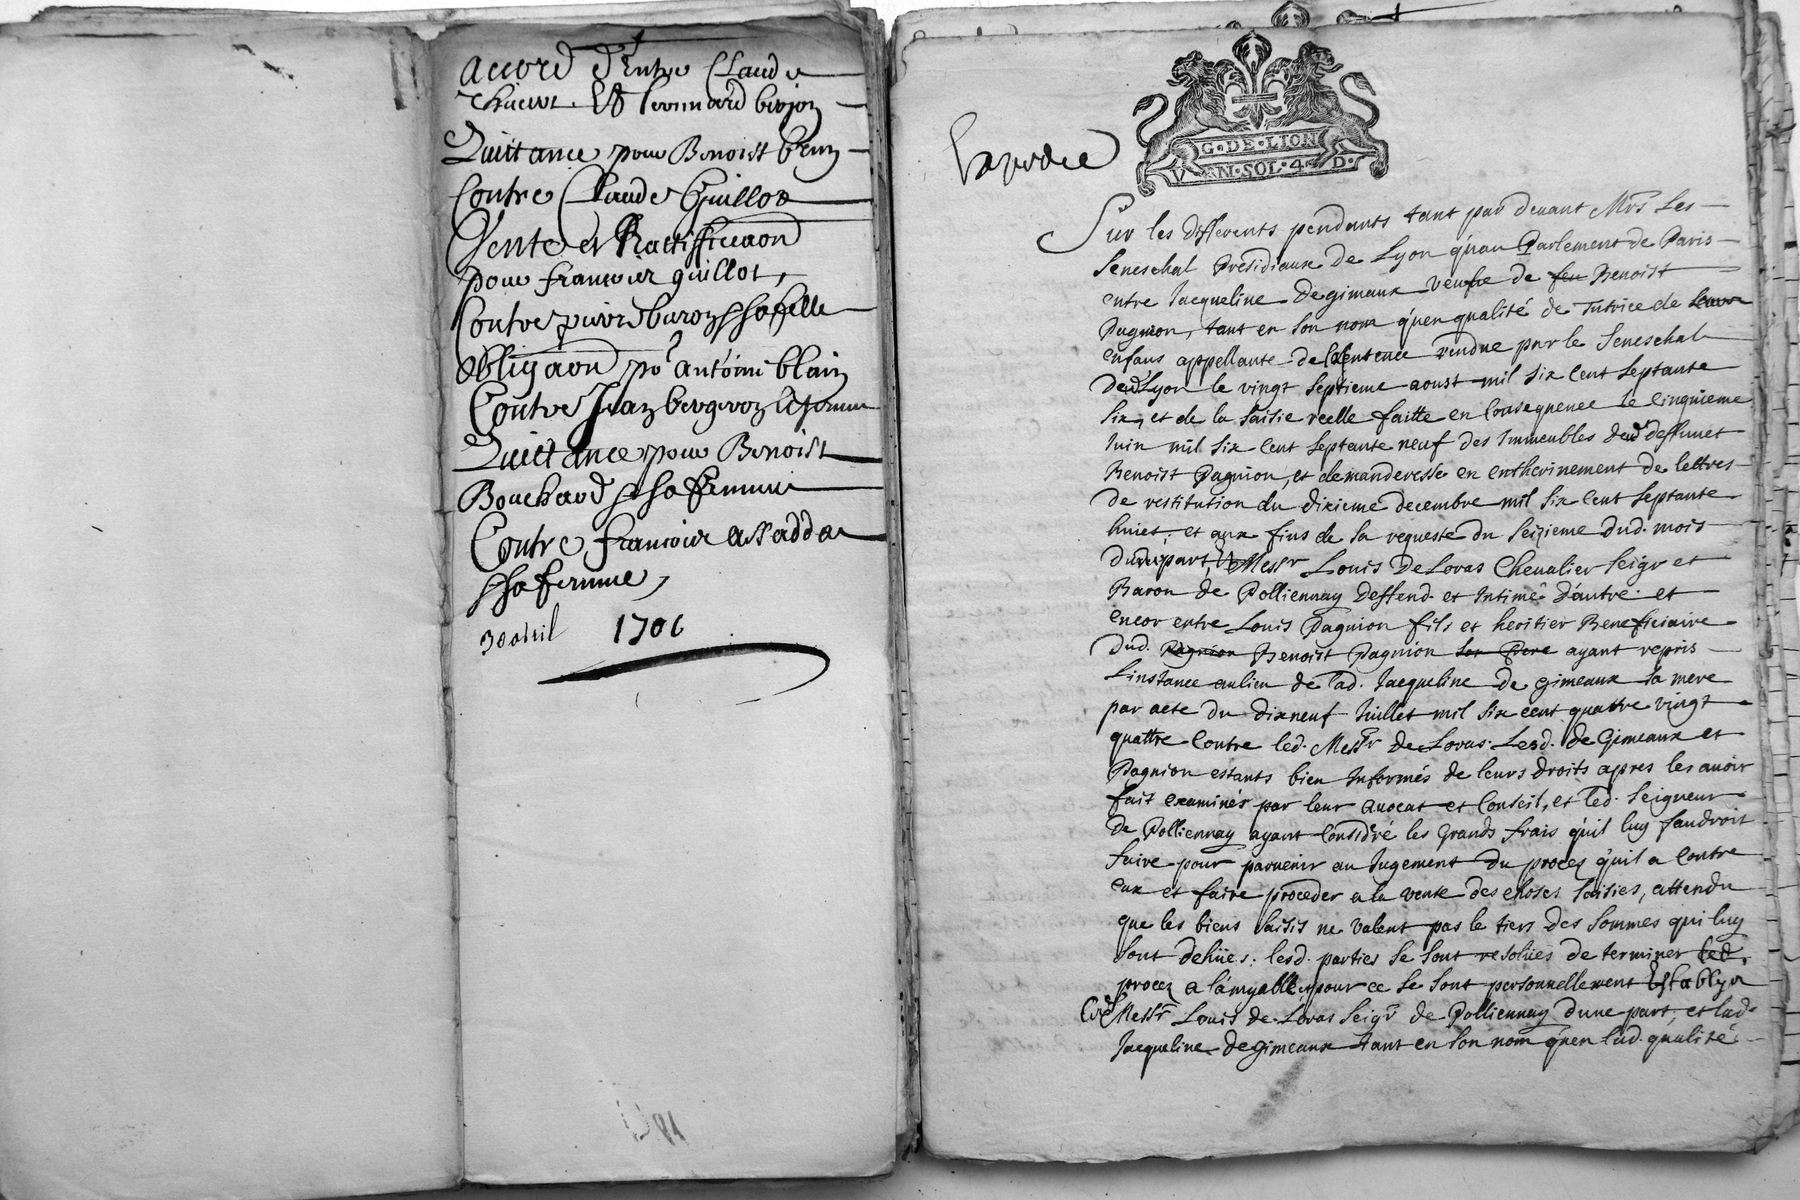 accord d'Entre Claude
Et leonnard
Quittance pour Benoist
Contre Claude Guillot
Vente et Rattifficaon
pour francoise guillot,
Contre pierre buron & sa fille
Obligaon po.r antoine blain
Contre Jean bergeron & sa femme
Quittance pour Benoist
Bouchard & sa femme
Contre francoise
& sa femme,
30 abril 1706
G·DE·LION
SOL·4·D·
Sur les differents pendants tant par devant Mrs Les
Seneschal Presidiaux de Lyon qu'au Parlement de Paris
entre Jacqueline Degimaux veufve de feu Benoist
Pagnion, tant en son nom qu'en qualité de Tutrice de leurs
enfans appellante de sentence rendue par le Seneschal
Dud. Lyon le vingt septieme aoust mil six cent septante
six, et de la saisie reelle faitte en consequence le cinquieme
Juin mil six cent septante neuf des Immeubles dud. deffunct
Benoist Pagnion, et demanderesse en entherinement de lettres
de restitution du dixieme decembre mil six cent septante
huict, et aux fins de sa requeste du seizieme dud. mois
d'une part, Et Messr Louis DeLoras Chevalier Seigr et
Baron de Polliennay Deffend. et Intimé d'autre. et
encor entre Louis Pagnion fils et heritier Beneficiaire
Dud. Pagnion Benoist Pagnion son Pere ayant repris
Linstance au lieu de lad. Jacqueline de gimeaux sa mere
par acte du dixneuf Juillet mil six cent quattre vingt
quattre Contre led. Messr de Loras. Lesd. de Gimeaux et
Pagnion estants bien Informés de leurs droits apres les avoir
fait examinés par leur avocat et Conseil, et led. Seigneur
de Polliennay ayant Consideré les grands frais qu'il luy faudroit
faire pour parvenir au Jugement du procez qu'il a Contre
eux et faire proceder a la vente des choses saisies, attendu
que les biens saisis ne valent pas le tiers des sommes qui luy
sont dehües; lesd. parties se sont resolües de terminer led.
procez a l'amyable, et pour ce se sont personnellement Establys
Led. Messr Louis de Loras Seigr de Polliennay d'une part, et lad.
Jacqueline de gimeaux tant en son nom qu'en lad. qualité